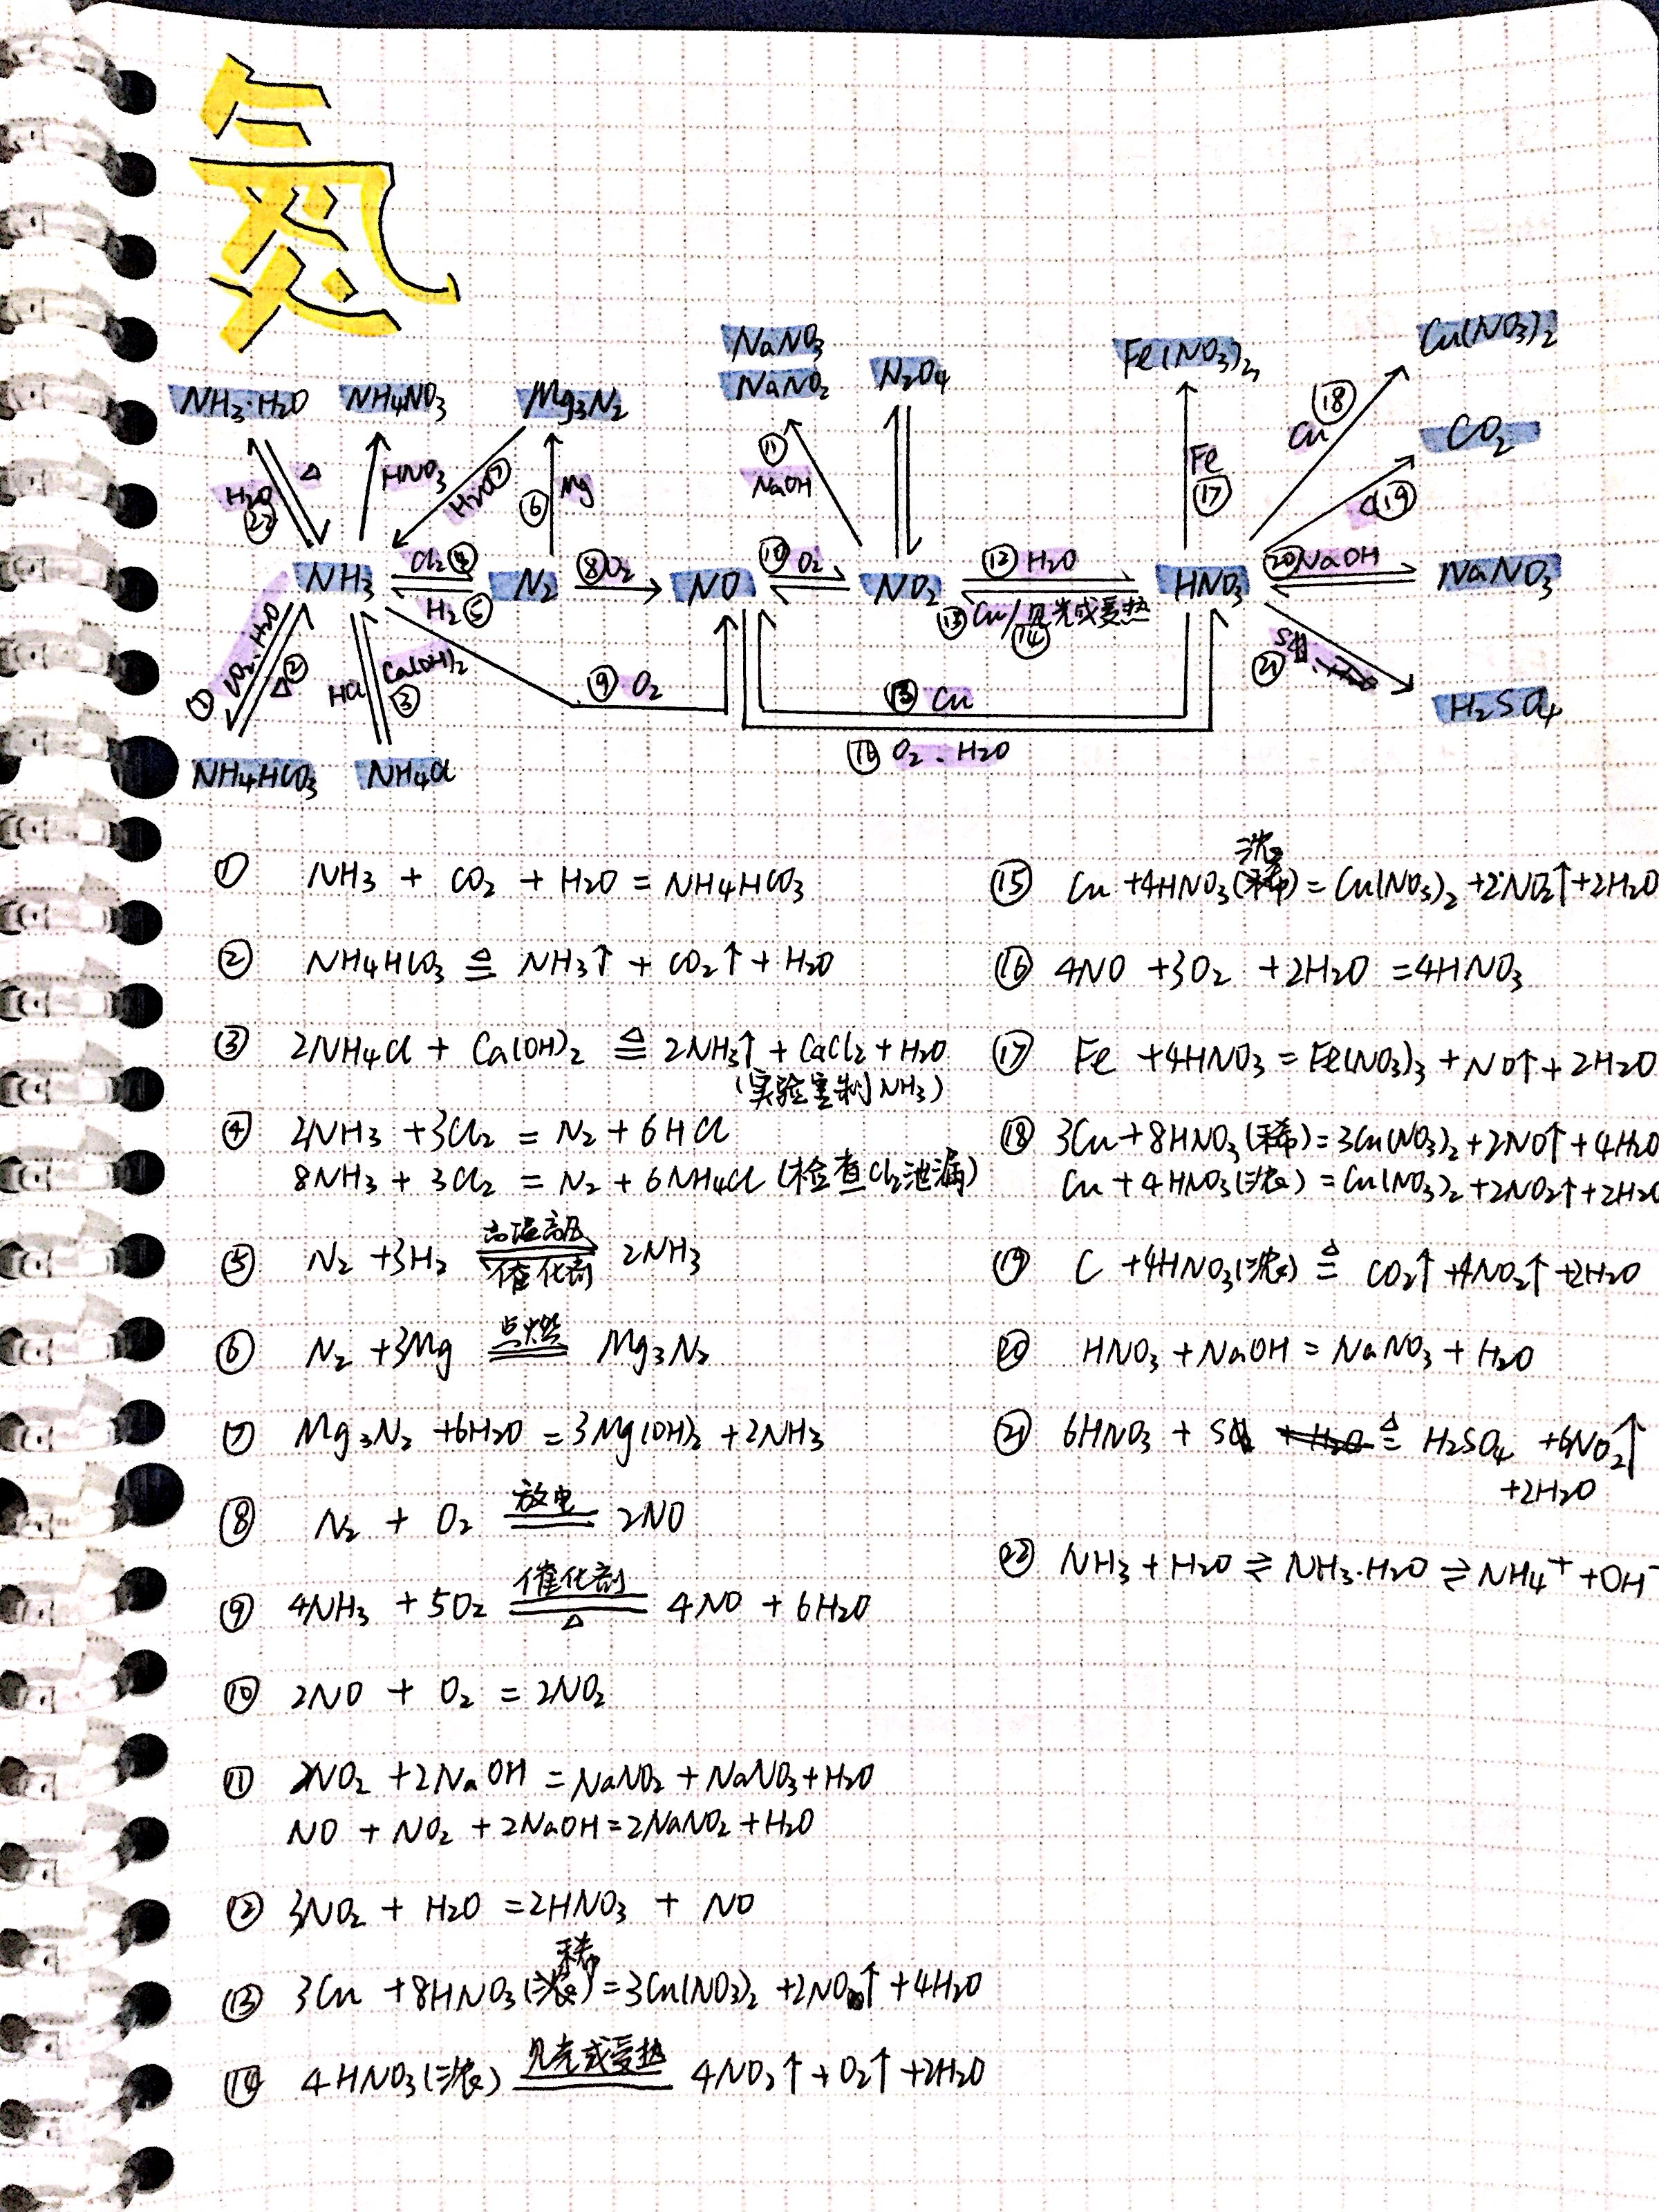 氮
NaNO₃
NaNO₂
N₂O₄
Fe(NO₃)₂
Cu(NO₃)₂
NH₃·H₂O
NH₄NO₃
Mg₃N₂
CO₂
⑱ Cu
⑪ NaOH
Fe ⑰
H₂O ㉒
△
HNO₃
H₂O ⑦
⑥ Mg
C ⑲
NH₃
Cl₂ ④
H₂ ⑤
N₂
⑧ O₂
NO
⑩ O₂
NO₂
⑫ H₂O
⑬ Cu/见光或受热
⑭
HNO₃
⑳ NaOH
NaNO₃
① CO₂·H₂O
△ ②
HCl
Ca(OH)₂ ③
⑨ O₂
⑬ Cu
㉑ S
H₂SO₄
⑯ O₂、H₂O
NH₄HCO₃
NH₄Cl
① NH₃ + CO₂ + H₂O = NH₄HCO₃
② NH₄HCO₃ ≜ NH₃↑ + CO₂↑ + H₂O
③ 2NH₄Cl + Ca(OH)₂ ≜ 2NH₃↑ + CaCl₂ + H₂O
(实验室制NH₃)
④ 2NH₃ + 3Cl₂ = N₂ + 6HCl
8NH₃ + 3Cl₂ = N₂ + 6NH₄Cl (检查Cl₂泄漏)
高温高压
⑤ N₂ + 3H₂ ⇌ 2NH₃
催化剂
点燃
⑥ N₂ + 3Mg = Mg₃N₂
⑦ Mg₃N₂ + 6H₂O = 3Mg(OH)₂ + 2NH₃
放电
⑧ N₂ + O₂ = 2NO
催化剂
⑨ 4NH₃ + 5O₂ = 4NO + 6H₂O
△
⑩ 2NO + O₂ = 2NO₂
⑪ 2NO₂ + 2NaOH = NaNO₂ + NaNO₃ + H₂O
NO + NO₂ + 2NaOH = 2NaNO₂ + H₂O
⑫ 3NO₂ + H₂O = 2HNO₃ + NO
稀
⑬ 3Cu + 8HNO₃(浓) = 3Cu(NO₃)₂ + 2NO↑ + 4H₂O
见光或受热
⑭ 4HNO₃(浓) = 4NO₂↑ + O₂↑ + 2H₂O
浓
⑮ Cu + 4HNO₃(稀) = Cu(NO₃)₂ + 2NO₂↑ + 2H₂O
⑯ 4NO + 3O₂ + 2H₂O = 4HNO₃
⑰ Fe + 4HNO₃ = Fe(NO₃)₃ + NO↑ + 2H₂O
⑱ 3Cu + 8HNO₃(稀) = 3Cu(NO₃)₂ + 2NO↑ + 4H₂O
Cu + 4HNO₃(浓) = Cu(NO₃)₂ + 2NO₂↑ + 2H₂O
⑲ C + 4HNO₃(浓) ≜ CO₂↑ + 4NO₂↑ + 2H₂O
⑳ HNO₃ + NaOH = NaNO₃ + H₂O
㉑ 6HNO₃ + S ≜ H₂SO₄ + 6NO₂↑
+2H₂O
㉒ NH₃ + H₂O ⇌ NH₃·H₂O ⇌ NH₄⁺ + OH⁻